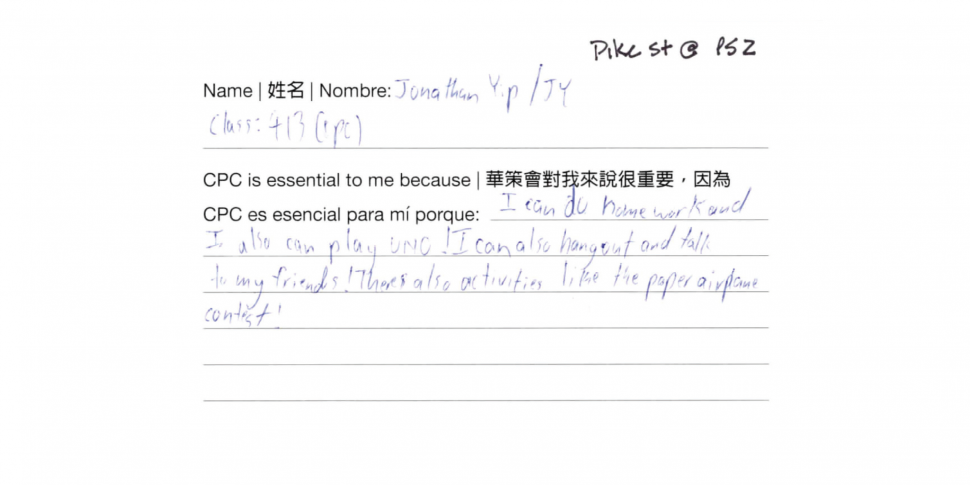 Pike St @ PS2
Name | 姓名 | Nombre: Jonathan Yip / JY
Class: 413 (cpc)
CPC is essential to me because | 華策會對我來說很重要，因為
CPC es esencial para mí porque: I can do homework and
I also can play UNO! I can also hangout and talk
to my friends! There's also activities like the paper airplane
contest!